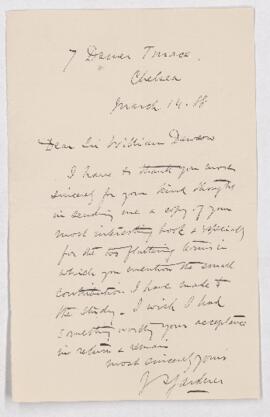 7 Damer Terrace
Chelsea
March 14. 88
Dear Sir William Dawson
I have to thank you most
sincerely for your kind thought
in sending me a copy of your
most interesting book & especially
for the too flattering terms in
which you mention the small
contribution I have made to
the study. I wish I had
something worthy your acceptance
in return & remain
most sincerely yours
J S Gardner